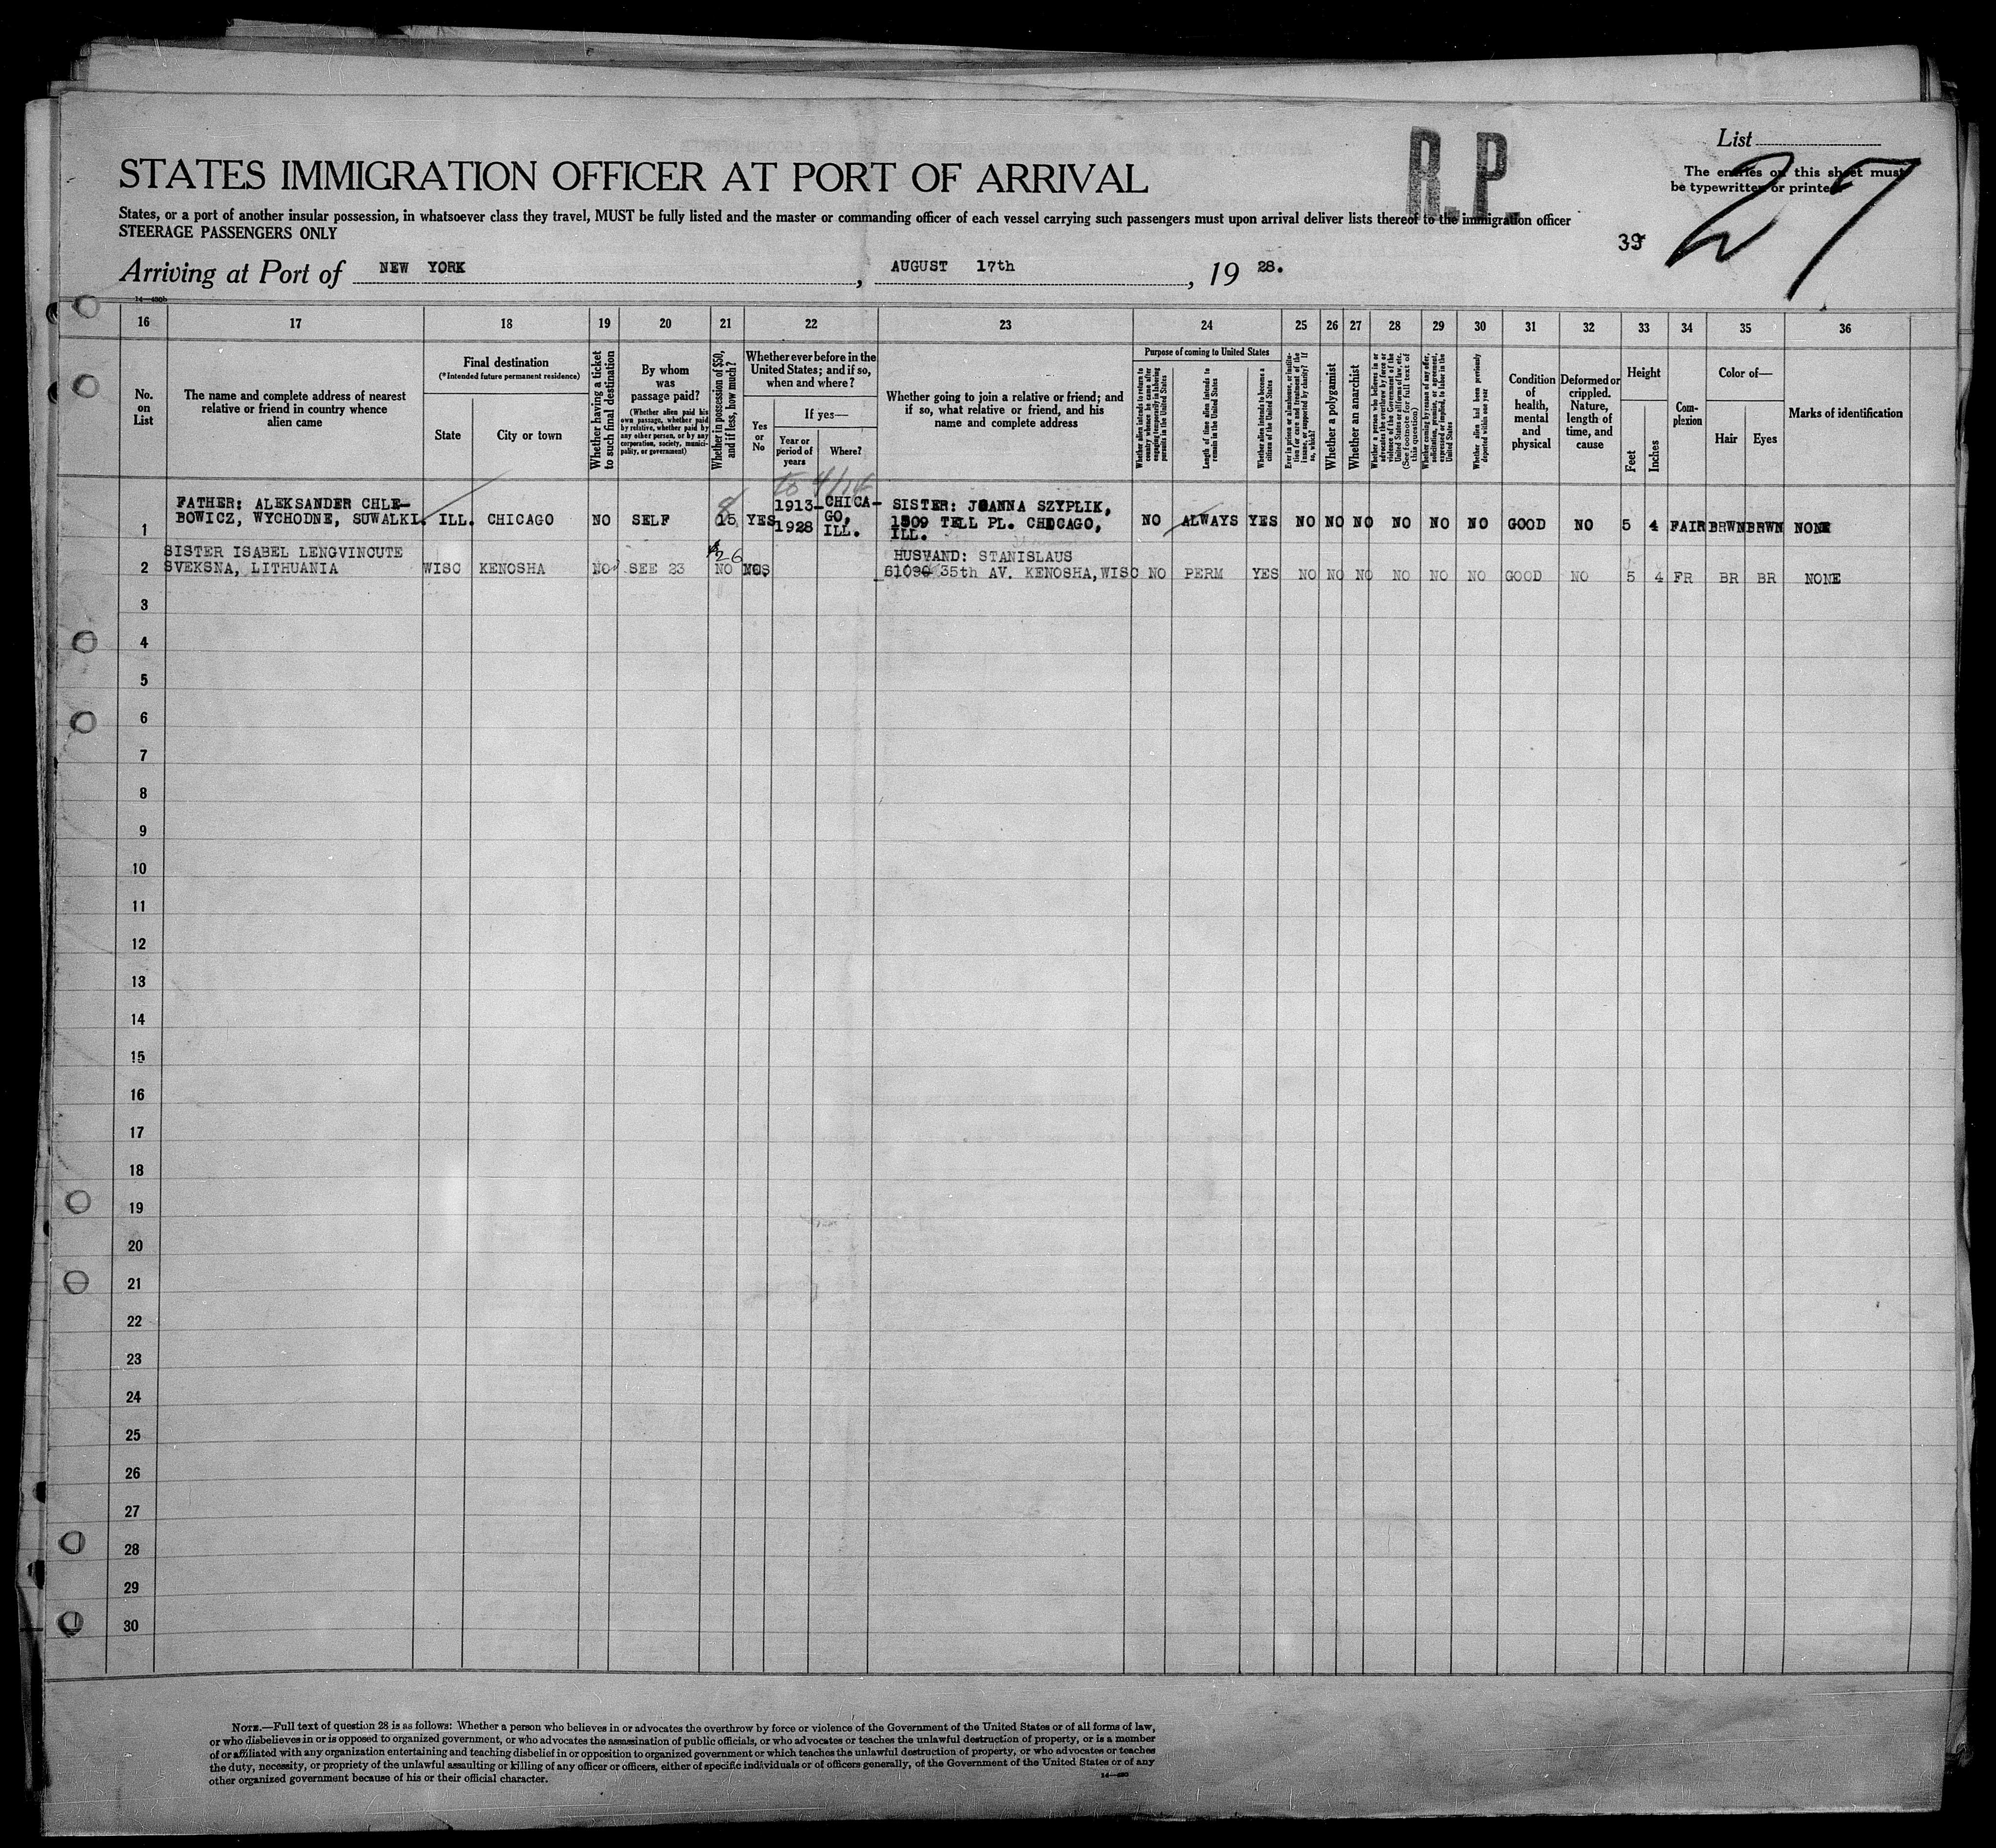 R.P.
List
27
STATES IMMIGRATION OFFICER AT PORT OF ARRIVAL
The entries on this sheet must
be typewritten or printed
States, or a port of another insular possession, in whatsoever class they travel, MUST be fully listed and the master or commanding officer of each vessel carrying such passengers must upon arrival deliver lists thereof to the immigration officer
STEERAGE PASSENGERS ONLY
Arriving at Port of NEW YORK, AUGUST 17th, 19 28.
14—430b
16 17 18 19 20 21 22 23 24 25 26 27 28 29 30 31 32 33 34 35 36
No. on List
The name and complete address of nearest relative or friend in country whence alien came
Final destination
(*Intended future permanent residence)
State
City or town
Whether having a ticket to such final destination
By whom was passage paid?
(Whether alien paid his own passage, whether paid by relative, whether paid by any other person, or by any corporation, society, municipality, or government)
Whether in possession of $50, and if less, how much?
Whether ever before in the United States; and if so, when and where?
Yes or No
If yes—
Year or period of years
Where?
Whether going to join a relative or friend; and if so, what relative or friend, and his name and complete address
Purpose of coming to United States
Whether alien intends to return to country whence he came after engaging temporarily in laboring pursuits in the United States
Length of time alien intends to remain in the United States
Whether alien intends to become a citizen of the United States
Ever in prison or almshouse, or institution for care and treatment of the insane, or supported by charity? If so, which?
Whether a polygamist
Whether an anarchist
Whether a person who believes in or advocates the overthrow by force or violence of the Government of the United States or all forms of law, etc. (See footnote for full text of this question)
Whether coming by reason of any offer, solicitation, promise, or agreement, expressed or implied, to labor in the United States
Whether alien had been previously deported within one year
Condition of health, mental and physical
Deformed or crippled. Nature, length of time, and cause
Height
Feet
Inches
Complexion
Color of—
Hair
Eyes
Marks of identification
1 FATHER: ALEKSANDER CHLE-
BOWICZ, WYCHODNE, SUWALKI. ILL. CHICAGO NO SELF 15 YES 1913-1928 CHICAGO, ILL. SISTER: JOANNA SZYPLIK,
1809 TELL PL. CHICAGO,
ILL. NO ALWAYS YES NO NO NO NO NO NO GOOD NO 5 4 FAIR BRWN BRWN NONE
2 SISTER ISABEL LENGVINCUTE
SVEKSNA, LITHUANIA WISC KENOSHA NO SEE 23 $26 NO HUSVAND: STANISLAUS
35th AV. KENOSHA, WISC NO PERM YES NO NO NO NO NO NO GOOD NO 5 4 FR BR BR NONE
3
4
5
6
7
8
9
10
11
12
13
14
15
16
17
18
19
20
21
22
23
24
25
26
27
28
29
30
NOTE.—Full text of question 28 is as follows: Whether a person who believes in or advocates the overthrow by force or violence of the Government of the United States or of all forms of law,
or who disbelieves in or is opposed to organized government, or who advocates the assassination of public officials, or who advocates or teaches the unlawful destruction of property, or is a member
of or affiliated with any organization entertaining and teaching disbelief in or opposition to organized government or which teaches the unlawful destruction of property, or who advocates or teaches
the duty, necessity, or propriety of the unlawful assaulting or killing of any officer or officers, either of specific individuals or of officers generally, of the Government of the United States or of any
other organized government because of his or their official character.